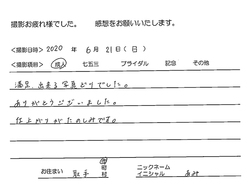 撮影お疲れ様でした。　感想をお願いいたします。
<撮影日時> 2020 年 6 月 21 日 ( 日 )
<撮影項目> 成人 七五三 ブライダル 記念 その他
満足出来る写真どりでした。
ありがとうございました。
仕上がりがたのしみです。
お住まい 取手 都 市 ニックネーム イニシャル あみ